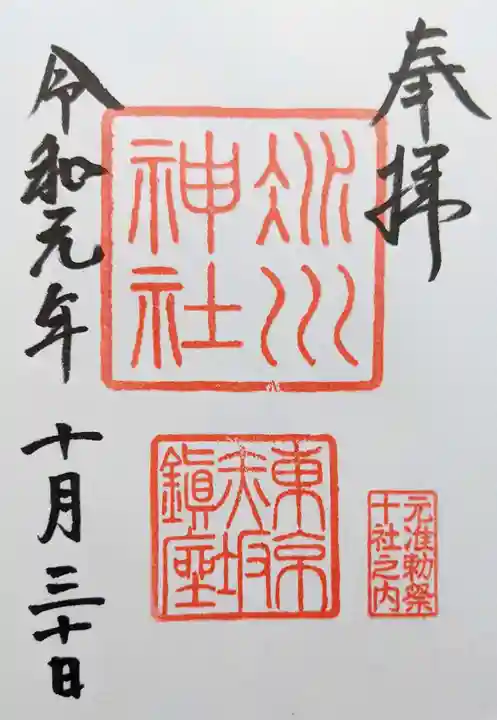 奉拝
氷川
神社
東京
赤坂
鎮座
元准勅祭
十社之内
令和元年 十月三十日